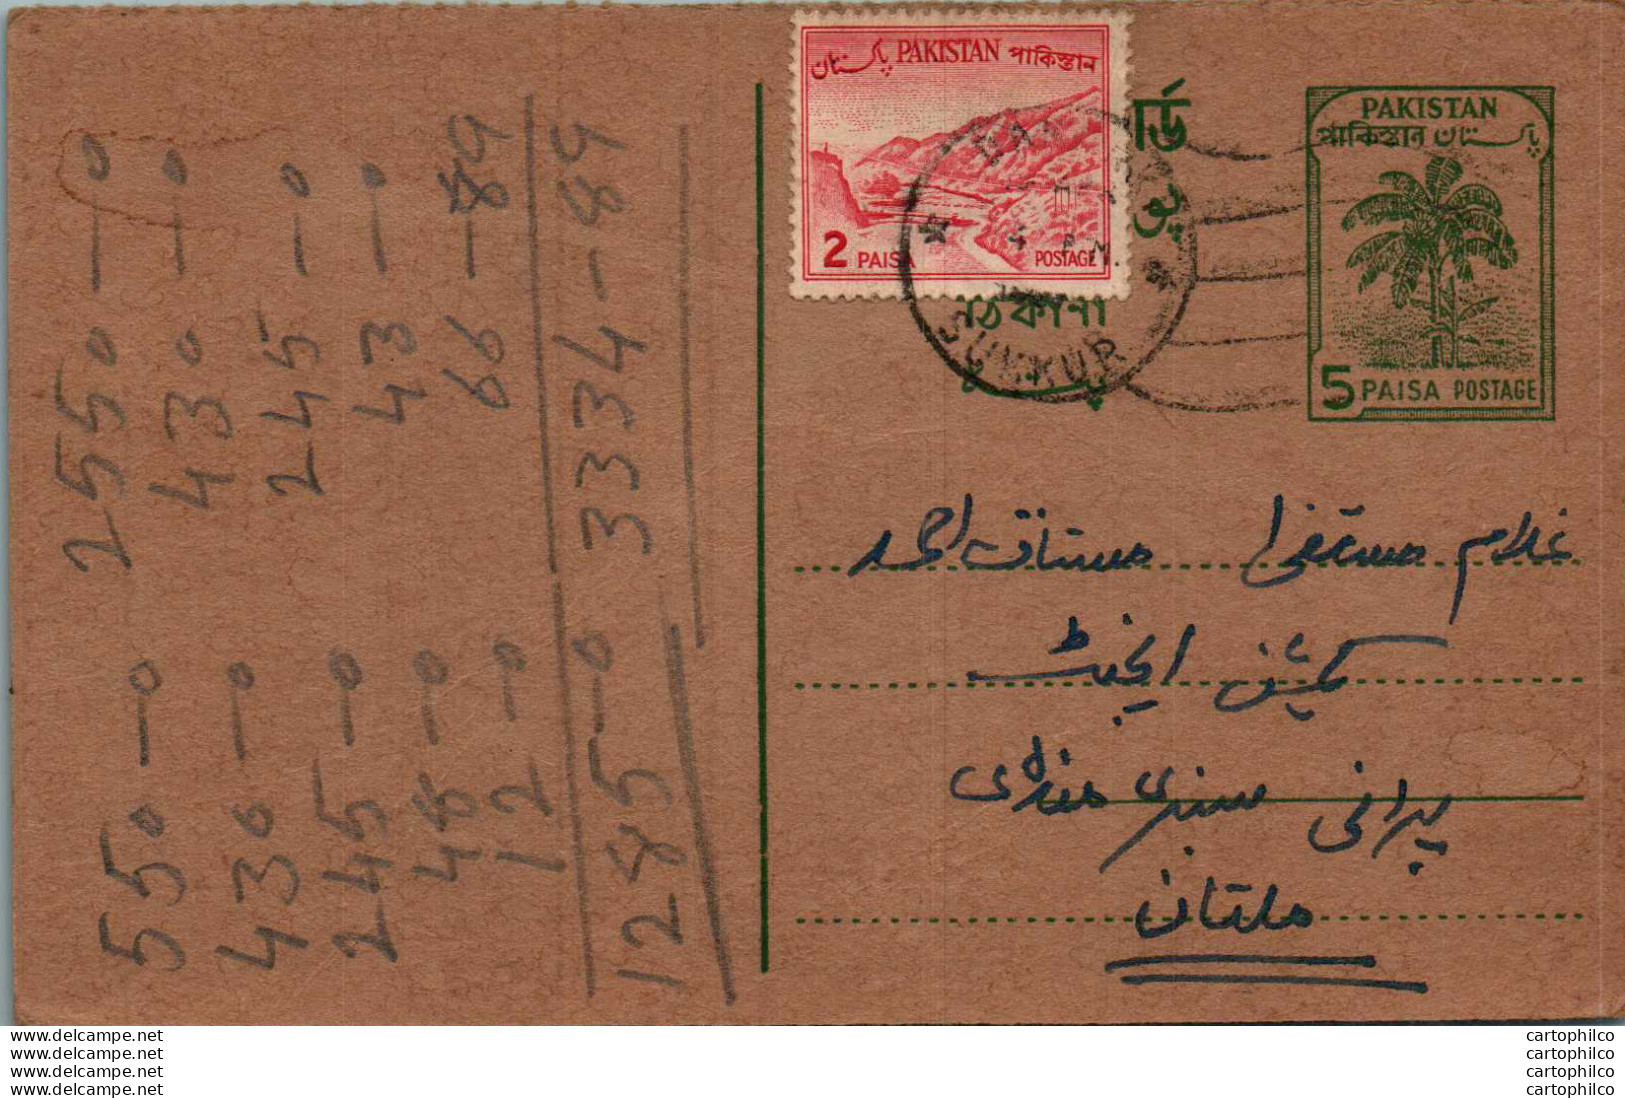 پاکستان PAKISTAN পাকিস্তান
2 PAISA POSTAGE
PAKISTAN
পাকিস্তান پاکستان
5 PAISA POSTAGE
র্ড
ঠিকানা
P.M.
SUKKUR
غلام مصطفیٰ مشتاق احمد
کمیشن ایجنٹ
پرانی سبزی منڈی
ملتان
2550-0
430-0
245-0
43-0
66-89
3334-89
550-0
430-0
245-0
48-0
12-0
1285-0
www.delcampe.net
www.delcampe.net
www.delcampe.net
www.delcampe.net
cartophilco
cartophilco
cartophilco
cartophilco